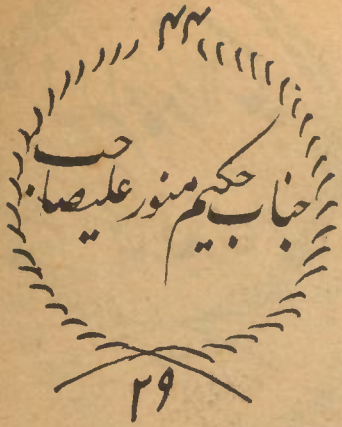 ۴۴
جناب حکیم منور علیصاحب
۲۹